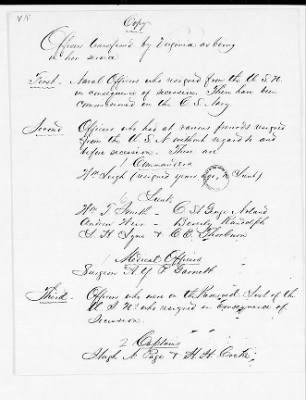 Copy
Officers transferred by Virginia as being
in her service
First - Naval Officers who resigned from the U. S. N.
in consequence of secession. These have been
commissioned in the C. S. Navy
Second Officers who had at various periods resigned
from the U. S. N. without regard to and
before secession. These are
1 Commander
Wm Leigh (resigned years ago, a Lieut)
Lieuts
Wm T. Smith - C. St George Noland
Andrew Weir - Beverly Randolph
S. H. Lyne & C. E. Thorburn
Medical Officers
Surgeon A. Y. P. Garnett
Third - Officers who were on the Reserved List of the
U. S. N. who resigned in consequence of
Secession.
2 Captains
Hugh N. Page & H. H. Cocke